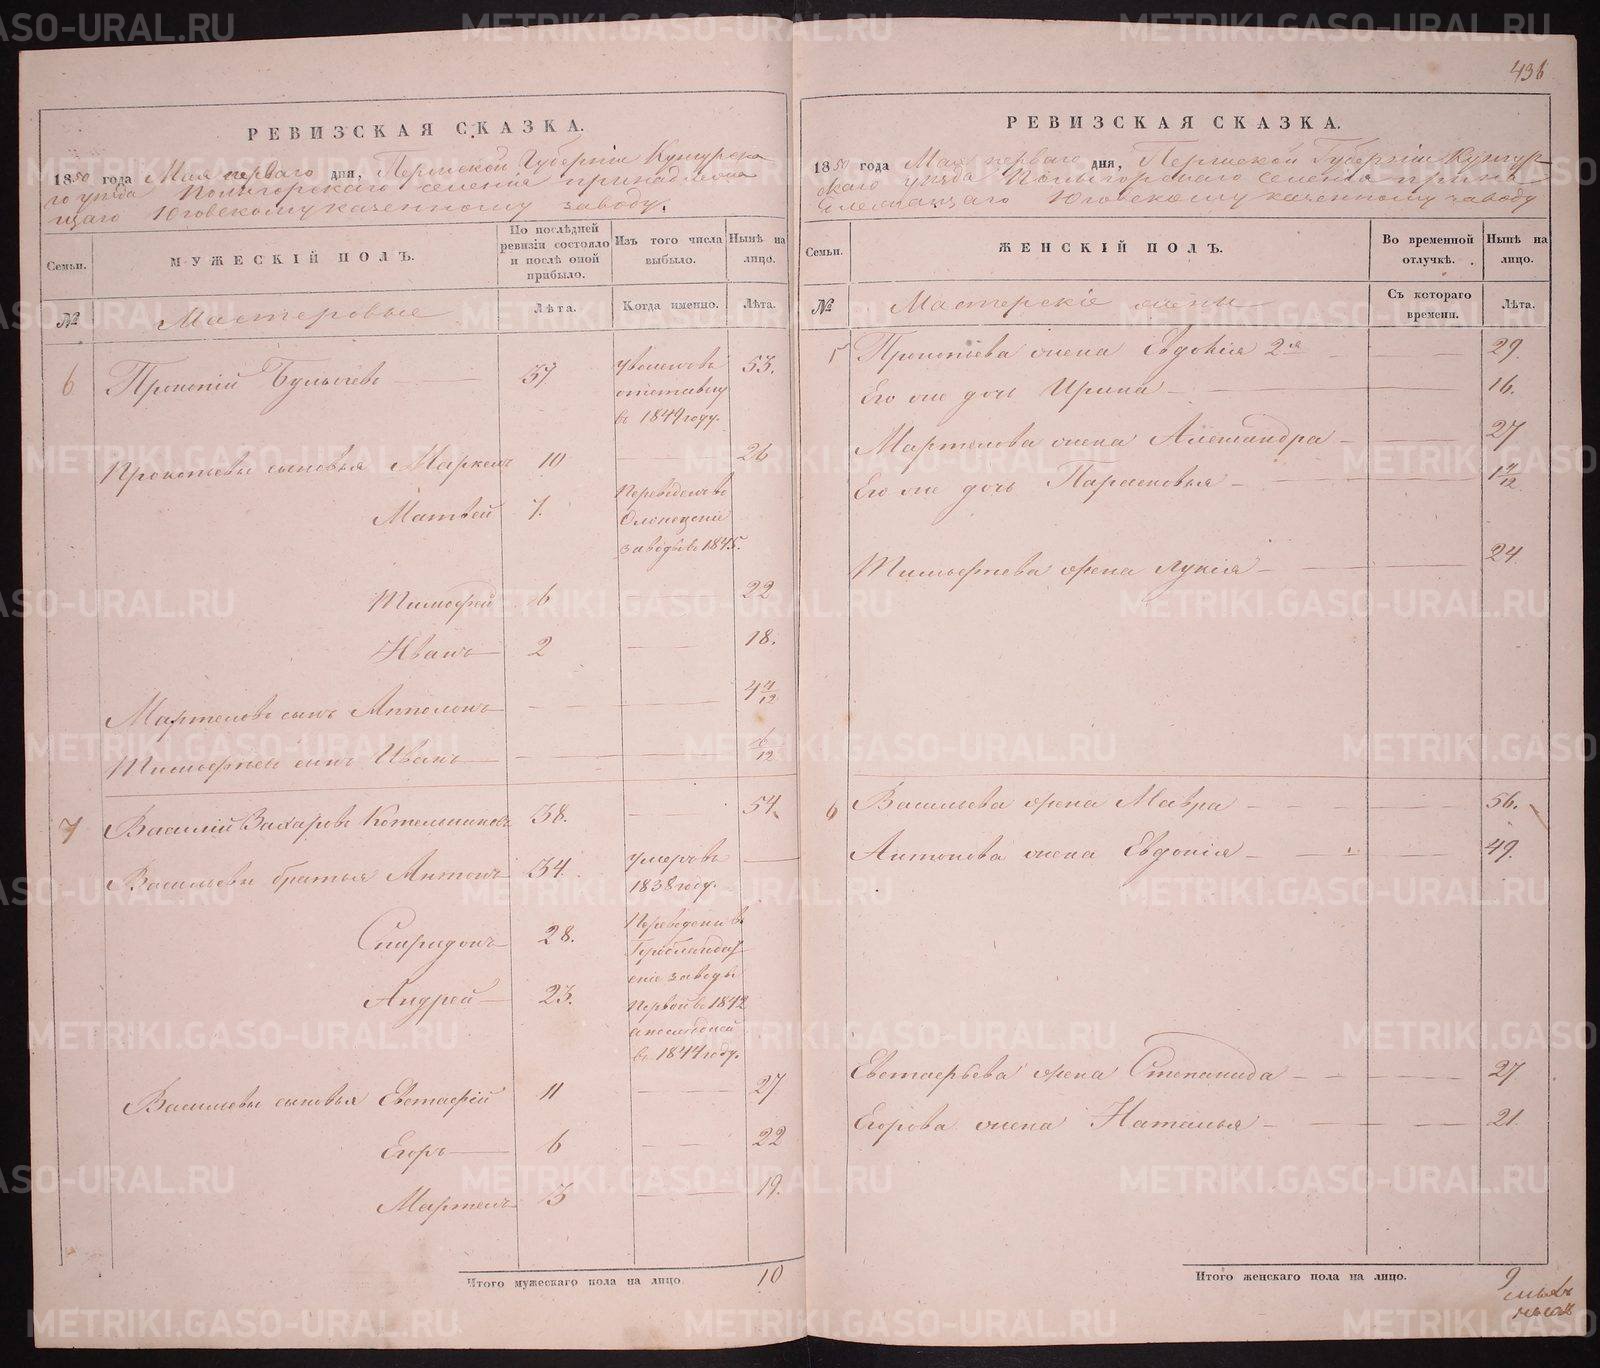 436
РЕВИЗСКАЯ СКАЗКА.
1850 года Мая перваго дня, Пермской Губерніи Кунгурска
го уѣзда селенія принадлежа
щаго Юговскому казенному заводу.
Семьи.
МУЖЕСКІЙ ПОЛЪ.
По послѣдней ревизіи состояло и послѣ оной прибыло.
Изъ того числа выбыло.
Нынѣ на лицо.
№
Мастеровые
Лѣта.
Когда именно.
Лѣта.
6 Прокопій 37 уволенъ въ 53.
отставку
въ 1849 году.
Прокопьевы сыновья Маркелъ 10 26
Матвей 7. Переведенъ въ
Олонецкіе
заводы въ 1845.
Тимофей 6 22
Иванъ 2 18.
Маркеловъ сынъ Апполонъ 4 4/12
Тимофеевъ сынъ Иванъ 6/12
7 Василій Захаровъ Котельниковъ 38. 54.
Васильевы братья Антонъ 34. умеръ въ
1838 году.
Спиридонъ 28. Переведены въ
Андрей 23. заводы
первой въ 1842
а последней
въ 1844 году.
Васильевы сыновья Евстафій 11 27
Егоръ 6 22
Маркелъ 3 19.
Итого мужескаго пола на лицо. 10
РЕВИЗСКАЯ СКАЗКА.
1850 года Мая перваго дня, Пермской Губерніи Кунгур-
скаго уѣзда селенія прина
длежащаго Юговскому казенному заводу
Семьи.
ЖЕНСКІЙ ПОЛЪ.
Во временной отлучкѣ.
Нынѣ на лицо.
№
Мастерскіе жены
Съ котораго времени.
Лѣта.
5 Прокопьева жена Евдокія 2я 29.
Его же дочь Ирина 16.
Маркелова жена Александра 27
Его же дочь Парасковья
Тимофеева жена Лукія 24
6 Васильева жена Мавра 56.
Антонова жена Евдокія 49.
Евстафьева жена Степанида 27
Егорова жена Наталья 21.
Итого женскаго пола на лицо. 9
METRIKI.GASO-URAL.RU